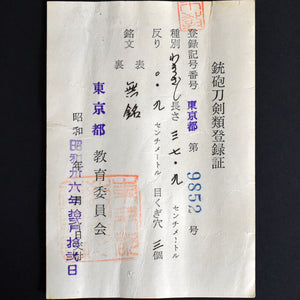 銃砲刀剣類登録証
登録記号番号 東京都 第 9852 号
種別 わきざし 長さ 三七・九 センチメートル
反り 〇・九 センチメートル 目くぎ穴 三個
銘文 表 無銘
裏
東京都 教育委員会
昭和 年 月 日